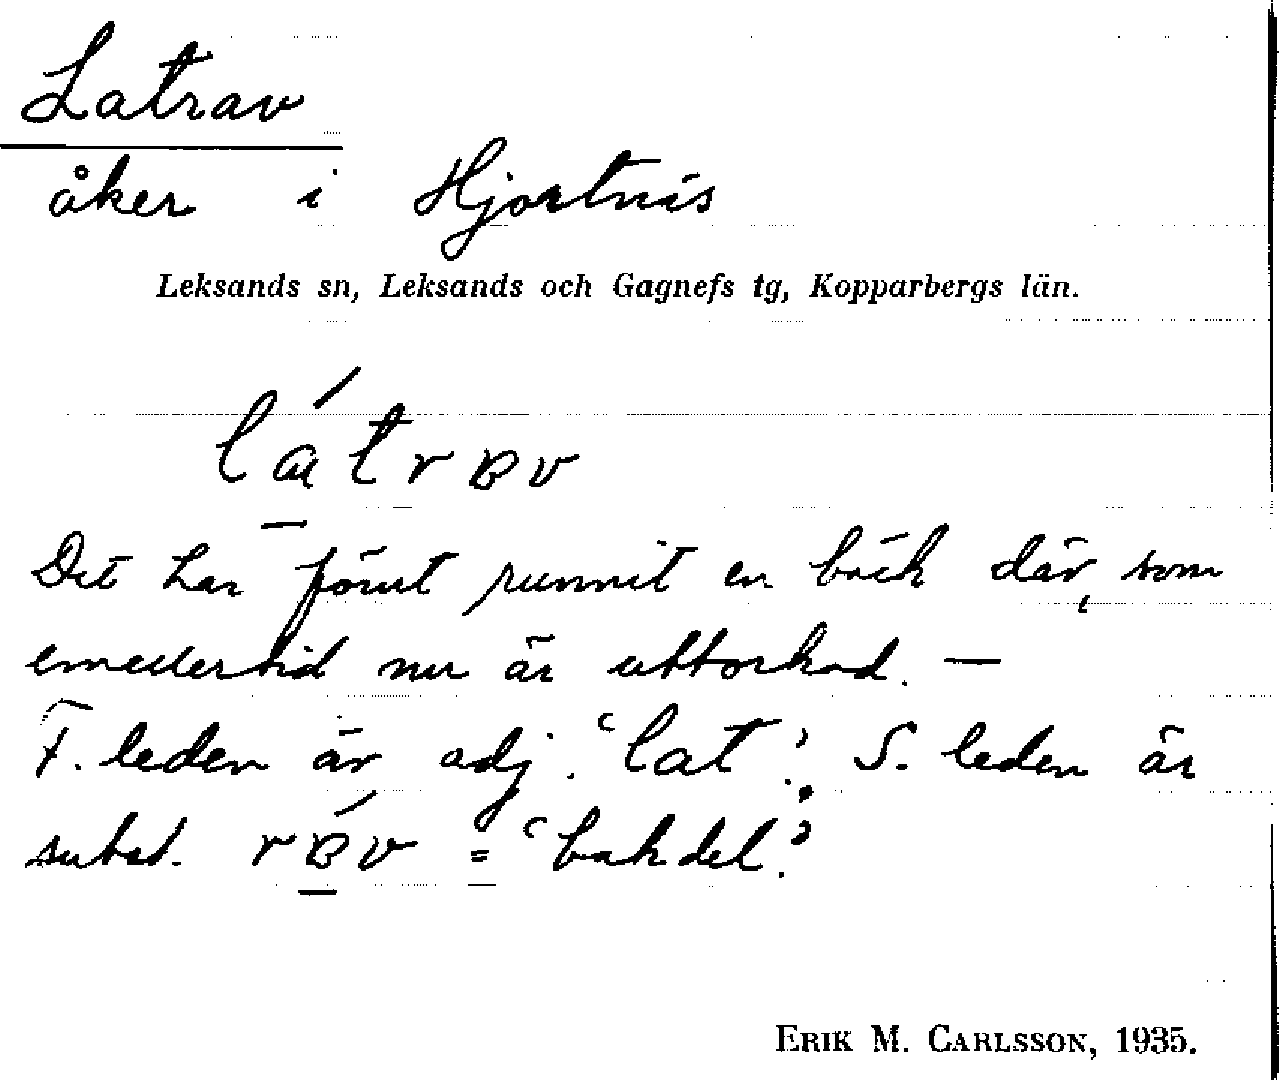 Latrav
åker i Hjortnäs
Leksands sn, Leksands och Gagnefs tg, Kopparbergs län.
Det har förut runnit en bäck där, som
emellertid nu är uttorkad. —
F. leden är adj. 'lat'. S. leden är
subst. = 'bakdel.'
ERIK M. CARLSSON, 1935.